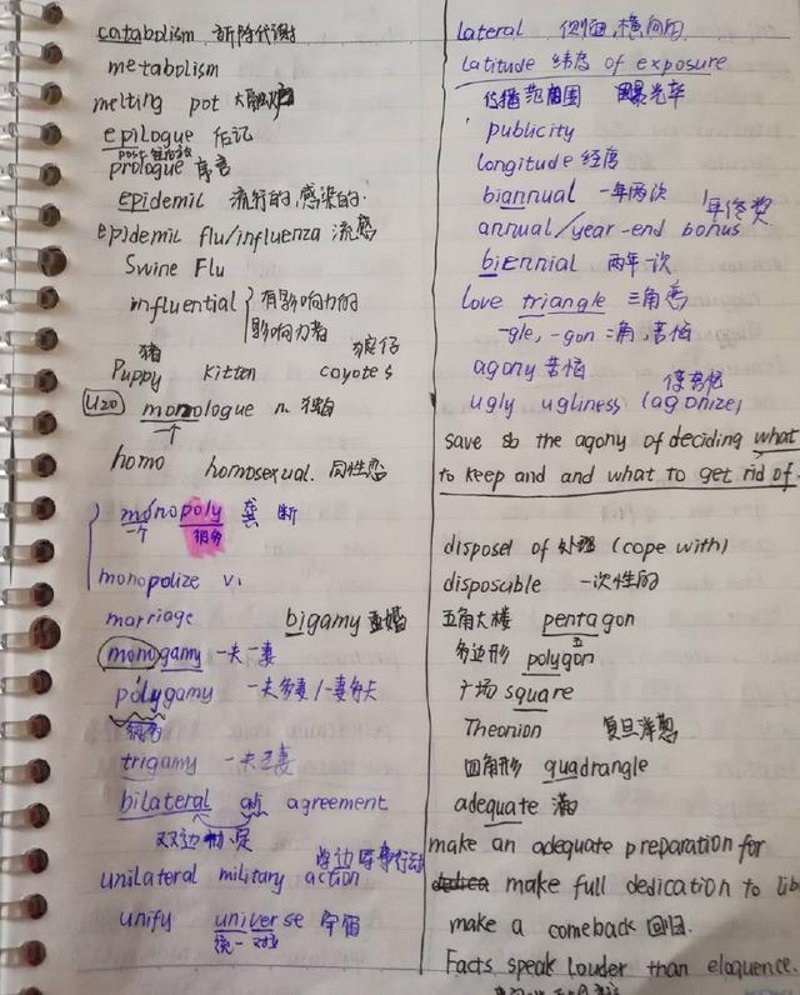 catabolism 新陈代谢
metabolism
melting pot 大熔炉
epilogue 后记
prologue 序言
epidemil 流行的,感染的.
epidemil flu/influenza 流感
Swine Flu
influential 有影响力的
影响力者
猪 狼仔
Puppy kitten coyotes
U20 monologue n. 独白
homo homosexual. 同性恋
monopoly 龚断
一个 很多
monopolize v.
marriage bigamy 重婚
monogamy 一夫一妻
polygamy 一夫多妻/一妻多夫
很多
trigamy 一夫三妻
bilateral agreement
双边协定
单边军事行动
unilateral military action
unify universe 宇宙
统一
lateral 侧面,横向用
latitude 纬度 of exposure
传播范围 曝光率
publicity
longitude 经度
biannual 一年两次
年终奖
annual/year-end bonus
biennial 两年一次
love triangle 三角恋
-gle, -gon 三角,苦恼
agony 苦恼
使苦恼
ugly ugliness (agonize)
save sb the agony of deciding what
to keep and and what to get rid of.
disposel of 处理 (cope with)
disposable 一次性的
五角大楼 pentagon
五
多边形 polygon
广场 square
Theonion 复旦洋葱
四角形 quadrangle
adequate 满
make an adequate preparation for
make full dedication to lib
make a comeback 回归.
Facts speak louder than eloquence.